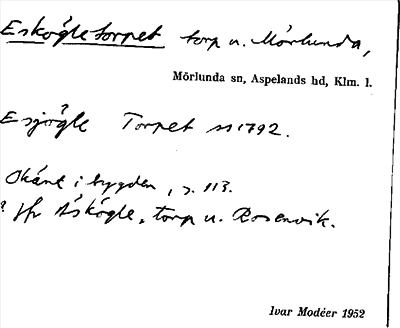 Eskögletorpet torp u. Mörlunda,
Mörlunda sn, Aspelands hd, Klm. l.
Esjögle Torpet 1792.
Okänt i bygden, s. 113.
? Jfr Åskögle, torp u. Rosenvik.
Ivar Modéer 1952